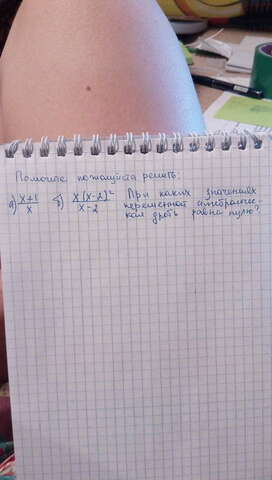 Помогите пожалуйста решить:
а) x+1/x б) x(x-2)²/x-2 При каких значениях
переменной алгебраичес-
кая дробь равна нулю?